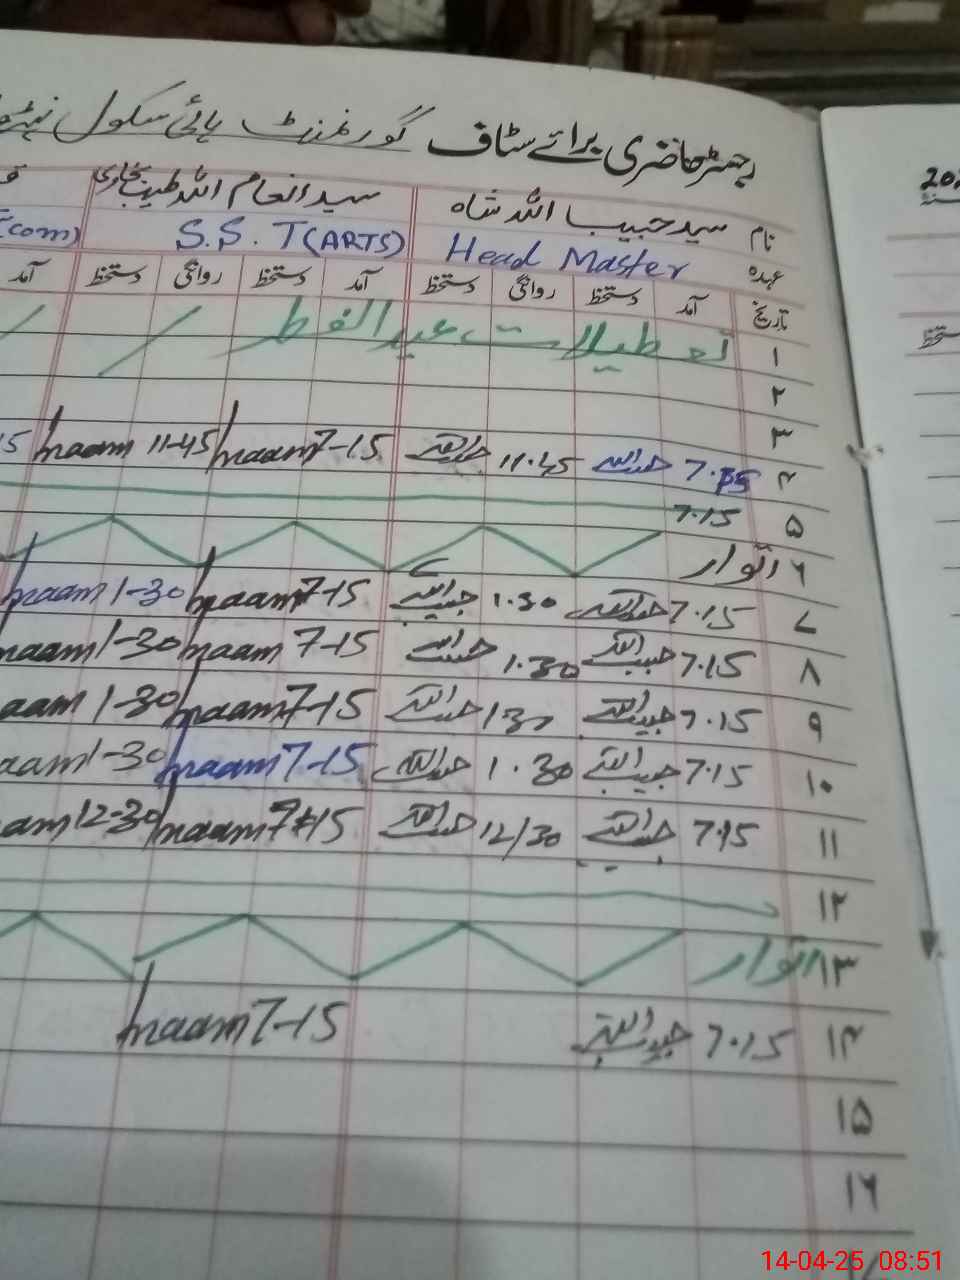 رجسٹر حاضری برائے سٹاف گورنمنٹ ہائی سکول
نام سید حبیب اللہ شاہ سید انعام اللہ طیب بخاری
عہدہ Head Master S.S.T(ARTS) com)
تاریخ آمد دستخط روانگی دستخط آمد دستخط روانگی دستخط آمد
۱ تعطیلات عید الفطر
۲
۳
۴ حبیب اللہ 11.45 حبیب اللہ 7-15 Inaam 11-45 Inaam 15
۵ 7.15
۶ اتوار
۷ 7.15 حبیب اللہ 1.30 حبیب اللہ 7-15 Inaam 1-30 Inaam
۸ 7.15 حبیب اللہ 1.30 حبیب اللہ 7-15 Inaam 1-30 naam
۹ 7.15 حبیب اللہ 130 حبیب اللہ 7-15 Inaam 1-30 aam
۱۰ 7.15 حبیب اللہ 1.30 حبیب اللہ 7-15 Inaam 1-30 aam
۱۱ 7.15 حبیب اللہ 12/30 حبیب اللہ 7-15 Inaam 12-30 am
۱۲
۱۳ اتوار
۱۴ 7.15 حبیب اللہ 7-15 Inaam
۱۵
۱۶
202
دستخط
14-04-25 08:51